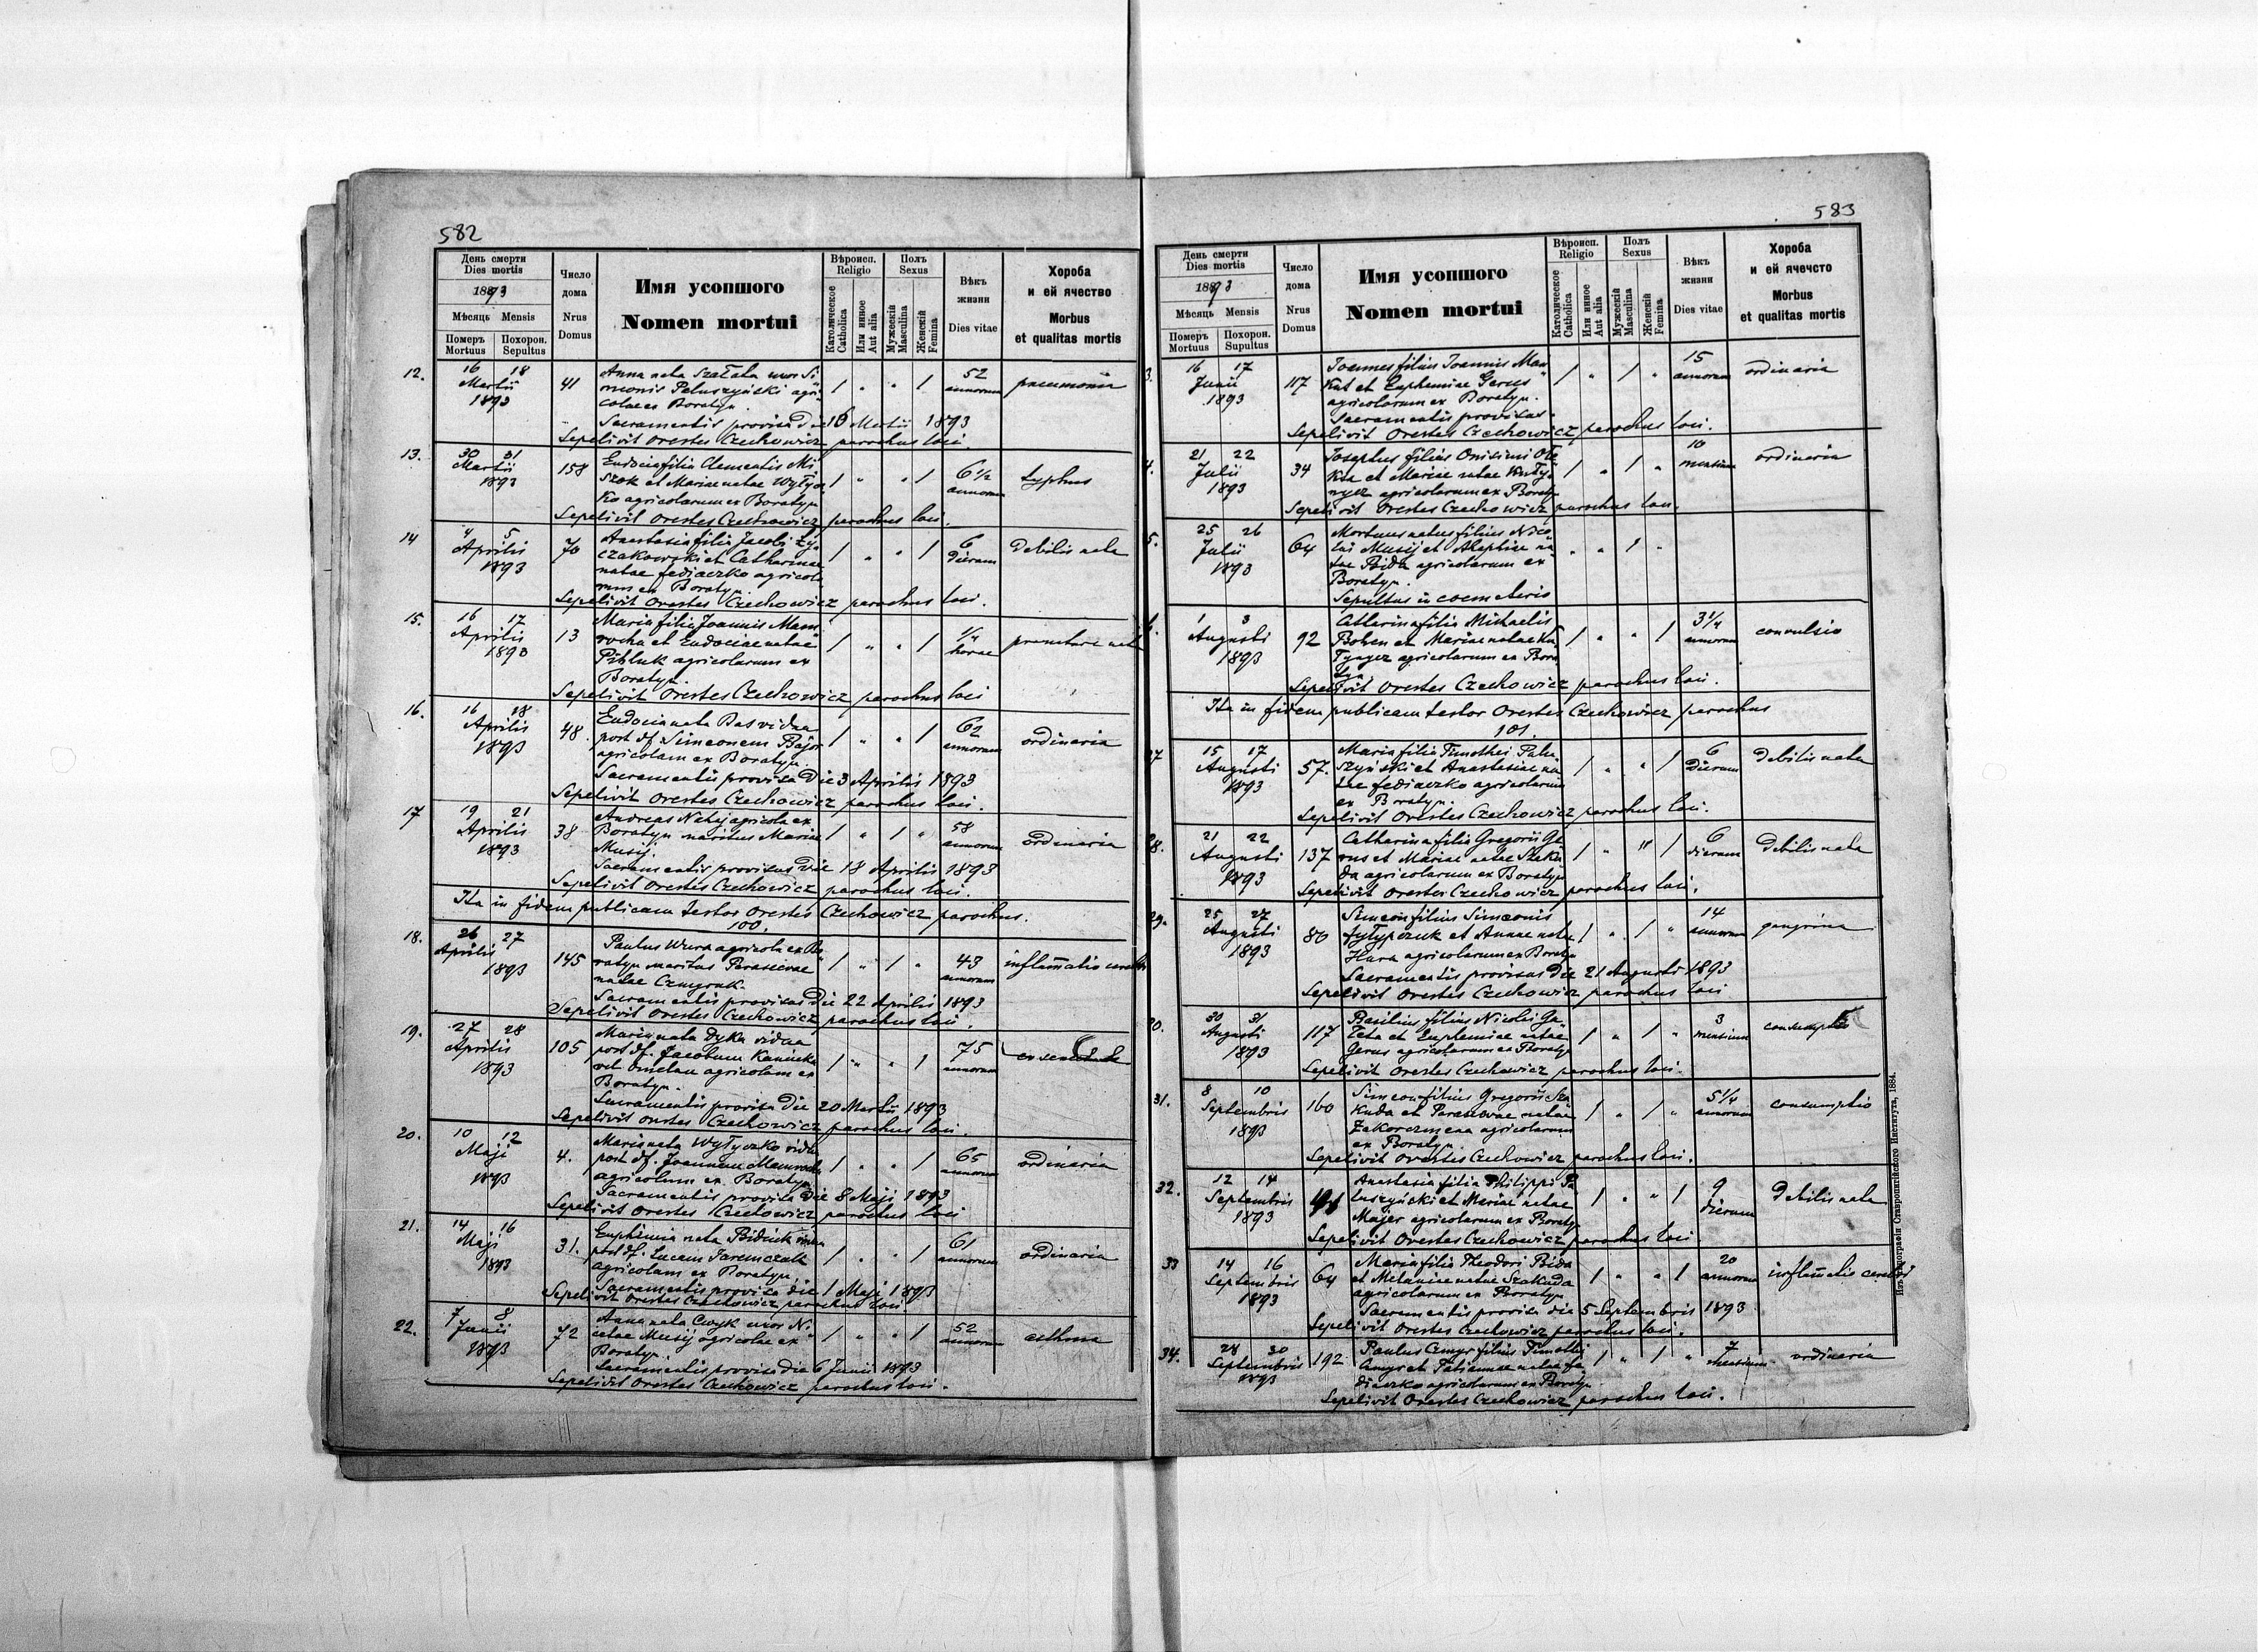 582
День смерти
Dies mortis
1893
Мѣсяць Mensis
Померъ Mortuus
Похорон. Sepultus
Число дома
Nrus Domus
Имя усопшого
Nomen mortui
Вѣроисп.
Religio
Католическое Catholica
Или инное Aut alia
Полъ
Sexus
Мужескій Masculina
Женскій Femina
Вѣкъ жизни
Dies vitae
Хороба
и ей ячество
Morbus
et qualitas mortis
12. 16 18 Martii 1893 41 Anna nata uxor Si
monis Paluszyński agri
colae ex Boratyn. 1 " " 1 52 annorum pneumonia
Sacramentis provisa die 16 Martii 1893
Sepelivit Orestes Czechowicz parochus loci.
13. 30 31 Martii 1893 158 Eudocia filia Clementis Mi
szok et Mariae natae Wytycz
ko agricolarum ex Boratyn 1 " " 1 6 1/2 annorum typhus
Sepelivit Orestes Czechowicz parochus loci.
14 4 5 Aprilis 1893 70 Anastasia filia Jacobi Ły
czakowski et Catharinae
natae Fediaczko agricola
rum ex Boratyn. 1 " " 1 6 dierum debilis nata
Sepelivit Orestes Czechowicz parochus loci.
15. 16 17 Aprilis 1893 13 Maria filia Joannis Mam
rocha et Eudociae natae
agricolarum ex
Boratyn. 1 " " 1 1/4 horae premature nata
Sepelivit Orestes Czechowicz parochus loci
16. 16 18 Aprilis 1893 48 Eudocia nata Bas vidua
post df. Simeonem Bajor
agricolam ex Boratyn. 1 " " 1 62 annorum ordinaria
Sacramentis provisa die 3 Aprilis 1893
Sepelivit Orestes Czechowicz parochus loci.
17 19 21 Aprilis 1893 38 Andreas agricola ex
Boratyn maritus Mariae
Musij. 1 " 1 " 58 annorum ordinaria
Sacramentis provisus die 18 Aprilis 1893
Sepelivit Orestes Czechowicz parochus loci.
Ita in fidem publicam testor Orestes Czechowicz parochus.
100.
18. 26 27 Aprilis 1893 145 Paulus agricola ex Bo
ratyn maritus Parascevae
natae 1 " 1 " 43 annorum inflam̄atio cerebri
Sacramentis provisus die 22 Aprilis 1893
Sepelivit Orestes Czechowicz parochus loci.
19. 27 28 Aprilis 1893 105 Maria nata Dyka vidua
post df. Jacobum
agricolam ex
Boratyn. 1 " " 1 75 annorum
Sacramentis provisa die 20 Martii 1893
Sepelivit Orestes Czechowicz parochus loci.
20. 10 12 Maji 1893 4. Maria nata Wytyczko vidua
post df. Joannem Mamrocha
agricolam ex Boratyn 1 " " 1 65 annorum ordinaria
Sacramentis provisa die 8 Maji 1893
Sepelivit Orestes Czechowicz parochus loci
21. 14 16 Maji 1893 31. Euphemia nata vidua
post df. Lucam Jaremczak
agricolam ex Boratyn. 1 " " 1 61 annorum ordinaria
Sacramentis provisa die 1 Maji 1893
Sepelivit Orestes Czechowicz parochus loci.
22. 7 8 Junii 1893 72 Anna nata Cwyk uxor Ni
cetae Musij agricolae ex
Boratyn. 1 " " 1 52 annorum asthma
Sacramentis provisa die 6 Junii 1893
Sepelivit Orestes Czechowicz parochus loci.
583
День смерти
Dies mortis
1893
Мѣсяць Mensis
Померъ Mortuus
Похорон. Supultus
Число дома
Nrus Domus
Имя усопшого
Nomen mortui
Вѣроисп.
Religio
Католическое Catholica
Или инное Aut alia
Полъ
Sexus
Мужескій Masculina
Женскій Femina
Вѣкъ жизни
Dies vitae
Хороба
и ей ячечсто
Morbus
et qualitas mortis
3. 16 17 Junii 1893 117 Joannes filius Joannis
et Euphemiae Gerus
agricolarum ex Boratyn. 1 " 1 " 15 annorum ordinaria
Sacramentis provisus.
Sepelivit Orestes Czechowicz parochus loci.
4. 21 22 Julii 1893 34 Josephus filius Onisimi
et Mariae natae
agricolarum ex Boratyn 1 " 1 " 10 mensium ordinaria
Sepelivit Orestes Czechowicz parochus loci.
5. 25 26 Julii 1893 64 Mortuus natus filius Nico
lai Musij et na
tae Bida agricolarum ex
Boratyn. " " 1 "
Sepultus in coemeterio
6. 1 3 Augusti 1893 92 Catharina filia Michaelis
Bohen et Mariae natae
agricolarum ex Bora
tyn. 1 " " 1 3 1/4 annorum convulsio
Sepelivit Orestes Czechowicz parochus loci.
Ita in fidem publicam testor Orestes Czechowicz parochus
101.
27 15 17 Augusti 1893 57. Maria filia Timothei Palu
szyński et Anastasiae na
tae Fediaczko agricolarum
ex Boratyn. 1 " " 1 6 dierum debilis nata
Sepelivit Orestes Czechowicz parochus loci.
28. 21 22 Augusti 1893 137 Catharina filia Gregorii Ge
rus et Mariae natae Szaku
da agricolarum ex Boratyn 1 " " 1 6 dierum debilis nata
Sepelivit Orestes Czechowicz parochus loci.
29. 25 27 Augusti 1893 80 Simeon filius Simeonis
et Annae natae
agricolarum ex Boratyn 1 " 1 " 14 annorum gangrina
Sacramentis provisus die 21 Augusti 1893
Sepelivit Orestes Czechowicz parochus loci
30. 30 31 Augusti 1893 117 Basilius filius Nicolai Ga
et Euphemiae natae
Gerus agricolarum ex Boratyn 1 " 1 " 3 mensium consumptio
Sepelivit Orestes Czechowicz parochus loci.
31. 8 10 Septembris 1893 160 Simeon filius Gregorii Sza
kuda et Parascevae natae
agricolarum
ex Boratyn 1 " 1 " 5 1/4 annorum consumptio
Sepelivit Orestes Czechowicz parochus loci.
32. 12 14 Septembris 1893 Anastasia filia Philippi Pa
luszyński et Mariae natae
Majer agricolarum ex Boratyn 1 " " 1 9 dierum debilis nata
Sepelivit Orestes Czechowicz parochus loci
33 14 16 Septembris 1893 64 Maria filia Theodori Bida
et Melaniae natae Szakuda
agricolarum ex Boratyn 1 " " 1 20 annorum inflam̄atio cerebri
Sacramentis provisa die 5 Septembris 1893.
Sepelivit Orestes Czechowicz parochus loci.
34. 28 30 Septembris 1893 192 Paulus Cmyr filius Timothei
Cmyr et Tatiannae natae Fe
diaczko agricolarum ex Boratyn 1 " 1 " 7 mensium ordinaria
Sepelivit Orestes Czechowicz parochus loci.
Изъ типографіи Ставропигійского Института, 1884.